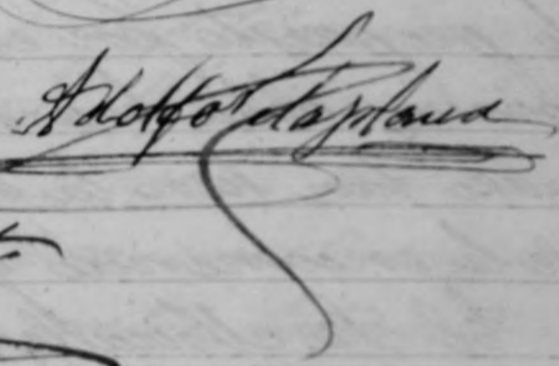 Adolfo Laplana